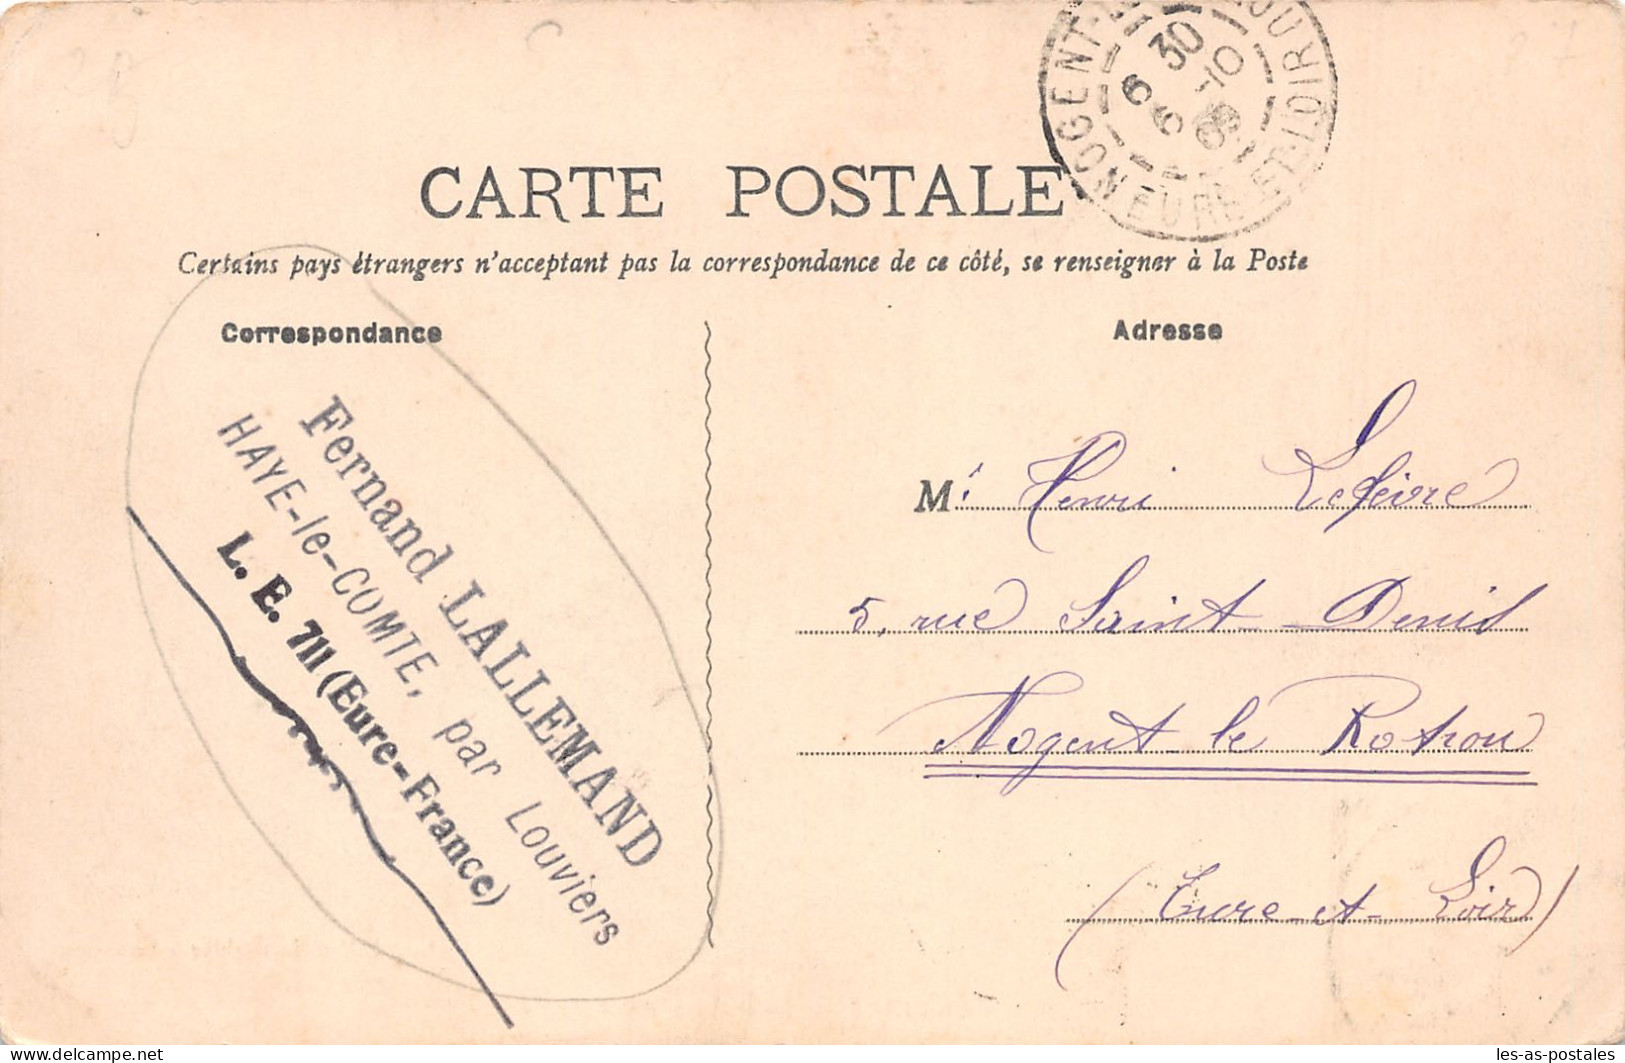 CARTE POSTALE
Certains pays étrangers n'acceptant pas la correspondance de ce côté, se renseigner à la Poste
Correspondance
Adresse
Fernand LALLEMAND
HAYE-le-COMTE, par Louviers
L. E. 711 (Eure-France)
Mr Henri Lefèvre
5, rue Saint-Denis
Nogent-le Rotrou
(Eure-et-Loir)
NOGENT-
EURE-ET-LOIR
6 30
les-as-postales